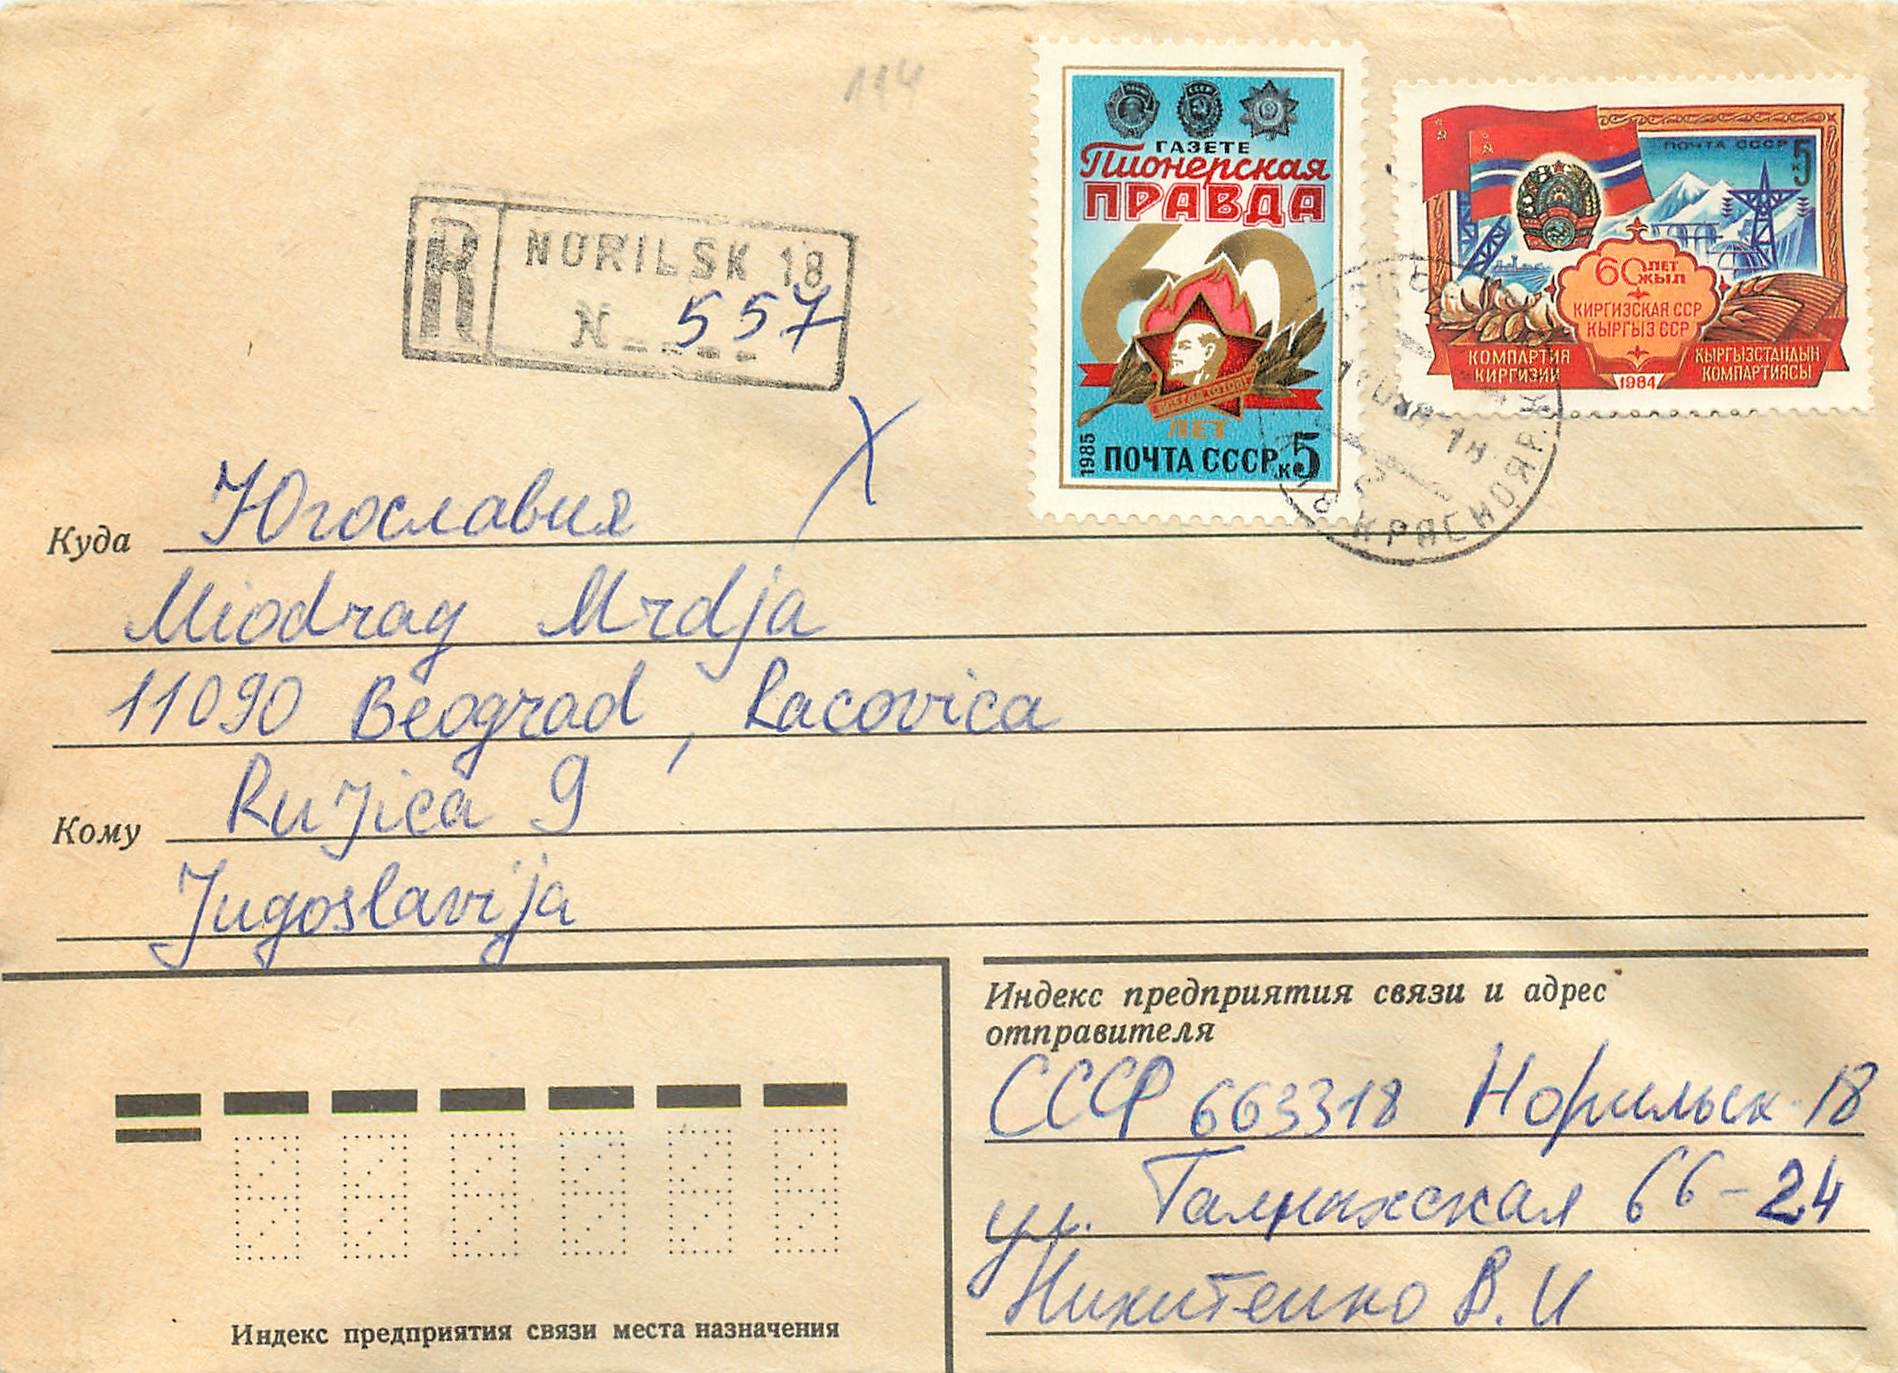 114
ГАЗЕТЕ
Пионерская
ПРАВДА
60
ЛЕТ
1985 ПОЧТА СССР к5
ПОЧТА СССР 5к
60 ЛЕТ ЖЫЛ
КИРГИЗСКАЯ ССР
КЫРГЫЗ ССР
КОМПАРТИЯ
КИРГИЗИИ
1984
КЫРГЫЗСТАНДЫН
КОМПАРТИЯСЫ
R NORILSK 18
N 557
КРАСНОЯР
Куда Югославия
Miodrag Mrdja
11090 Beograd, Racovica
Кому Ružica 9
Jugoslavija
Индекс предприятия связи и адрес
отправителя
СССР 663318 Норильск 18
ул. Талнахская 66-24
Никитенко В. И
Индекс предприятия связи места назначения